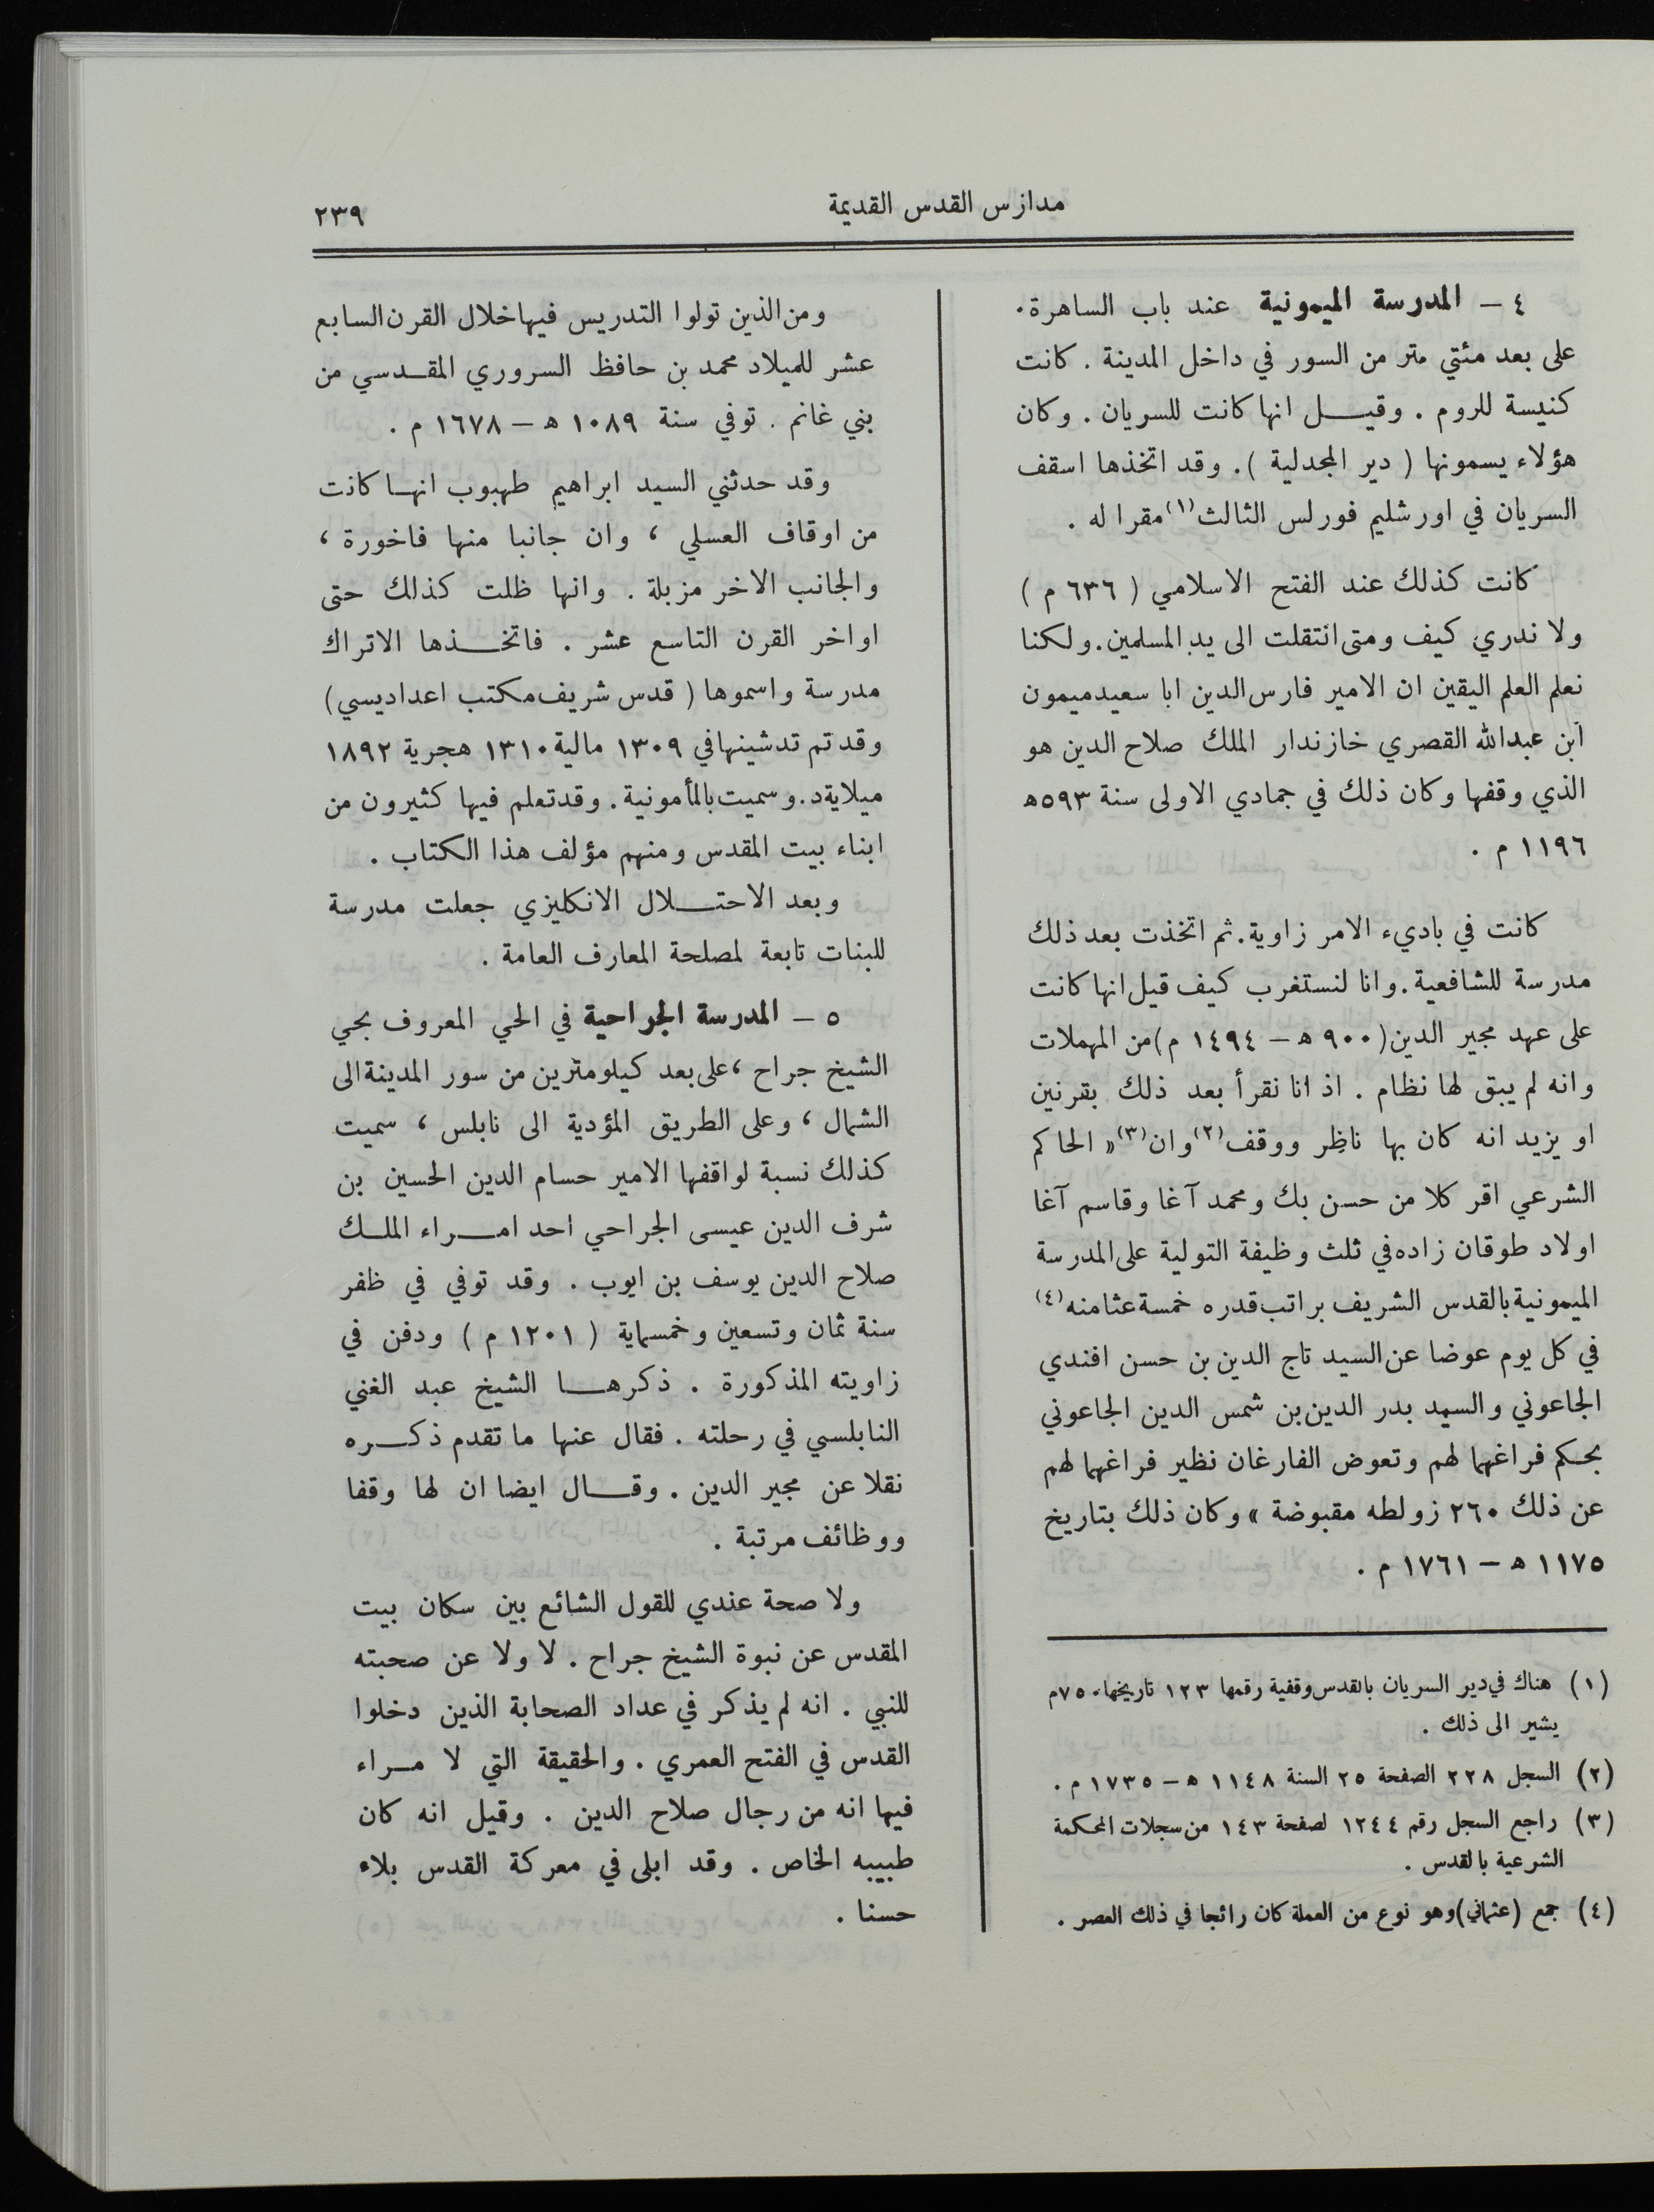 مدارس القدس القديمة
٢٣٩
٤ – المدرسة الميمونية عند باب الساهرة.
على بعد مئتي متر من السور في داخل المدينة . كانت
كنيسة للروم . وقيل انها كانت للسريان . وكان
هؤلاء يسمونها ( دير المجدلية ). وقد اتخذها اسقف
السريان في اورشليم فورلس الثالث(١) مقرا له .
كانت كذلك عند الفتح الاسلامي ( ٦٣٦ م )
ولا ندري كيف ومتى انتقلت الى يد المسلمين. ولكنا
نعلم العلم اليقين ان الامير فارس الدين ابا سعيد ميمون
ابن عبدالله القصري خازندار الملك صلاح الدين هو
الذي وقفها وكان ذلك في جمادي الاولى سنة ٥٩٣ﻫ
١١٩٦ م .
كانت في باديء الامر زاوية. ثم اتخذت بعد ذلك
مدرسة للشافعية. وانا لنستغرب كيف قيل انها كانت
على عهد مجير الدين (٩٠٠ ﻫ – ١٤٩٤ م) من المهملات
وانه لم يبق لها نظام . اذ انا نقرأ بعد ذلك بقرنين
او يزيد انه كان بها ناظر ووقف(٢) وان(٣) « الحاكم
الشرعي اقر كلا من حسن بك ومحمد آغا وقاسم آغا
اولاد طوقان زاده في ثلث وظيفة التولية على المدرسة
الميمونية بالقدس الشريف براتب قدره خمسة عثامنه(٤)
في كل يوم عوضا عن السيد تاج الدين بن حسن افندي
الجاعوني والسيد بدر الدين بن شمس الدين الجاعوني
بحكم فراغهما لهم وتعوض الفارغان نظير فراغهما لهم
عن ذلك ٢٦٠ زولطه مقبوضة » وكان ذلك بتاريخ
١١٧٥ ﻫ – ١٧٦١ م .
(١) هناك في دير السريان بالقدس وقفية رقمها ١٢٣ تاريخها ٧٥٠م
يشير الى ذلك .
(٢) السجل ٢٢٨ الصفحة ٢٥ السنة ١١٤٨ ﻫ – ١٧٣٥ م .
(٣) راجع السجل رقم ١٢٤٤ لصفحة ١٤٣ من سجلات المحكمة
الشرعية بالقدس .
(٤) جمع (عثماني) وهو نوع من العملة كان رائجا في ذلك العصر .
ومن الذين تولوا التدريس فيها خلال القرن السابع
عشر للميلاد محمد بن حافظ السروري المقدسي من
بني غانم . توفي سنة ١٠٨٩ ﻫ – ١٦٧٨ م .
وقد حدثني السيد ابراهيم طهبوب انها كانت
من اوقاف العسلي ، وان جانبا منها فاخورة ،
والجانب الاخر مزبلة . وانها ظلت كذلك حتى
اواخر القرن التاسع عشر . فاتخذها الاتراك
مدرسة واسموها ( قدس شريف مكتب اعداديسي)
وقد تم تدشينها في ١٣٠٩ مالية ١٣١٠ هجرية ١٨٩٢
ميلايةد. وسميت بالمأمونية. وقد تعلم فيها كثيرون من
ابناء بيت المقدس ومنهم مؤلف هذا الكتاب .
وبعد الاحتلال الانكليزي جعلت مدرسة
للبنات تابعة لمصلحة المعارف العامة .
٥ – المدرسة الجراحية في الحي المعروف بحي
الشيخ جراح ، على بعد كيلومترين من سور المدينة الى
الشمال ، وعلى الطريق المؤدية الى نابلس ، سميت
كذلك نسبة لواقفها الامير حسام الدين الحسين بن
شرف الدين عيسى الجراحي احد امراء الملك
صلاح الدين يوسف بن ايوب . وقد توفي في ظفر
سنة ثمان وتسعين وخمسماية ( ١٢٠١ م ) ودفن في
زاويته المذكورة . ذكرها الشيخ عبد الغني
النابلسي في رحلته . فقال عنها ما تقدم ذكره
نقلا عن مجير الدين . وقال ايضا ان لها وقفا
ووظائف مرتبة .
ولا صحة عندي للقول الشائع بين سكان بيت
المقدس عن نبوة الشيخ جراح . لا ولا عن صحبته
للنبي . انه لم يذكر في عداد الصحابة الذين دخلوا
القدس في الفتح العمري . والحقيقة التي لا مراء
فيها انه من رجال صلاح الدين . وقيل انه كان
طبيبه الخاص . وقد ابلى في معركة القدس بلاء
حسنا .